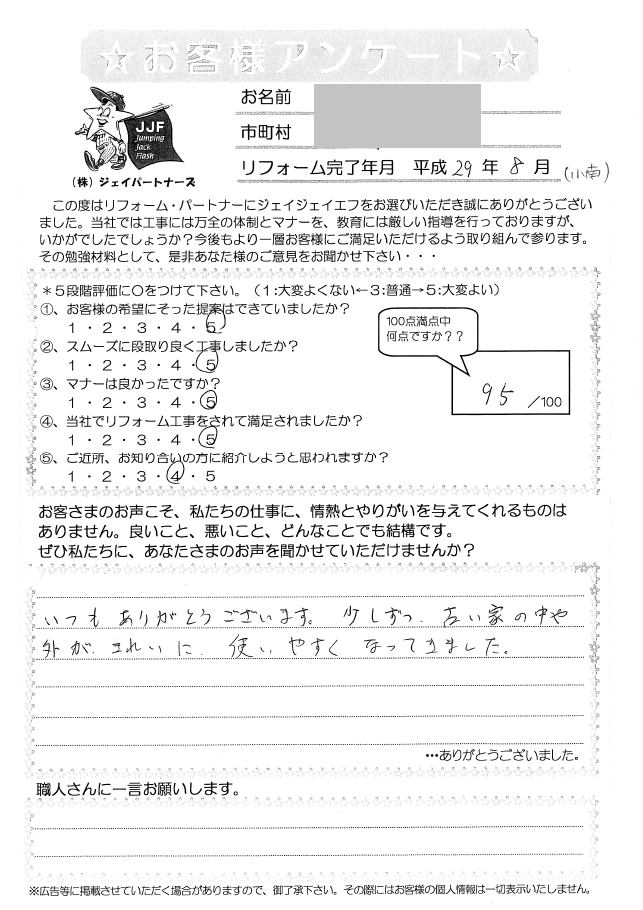 ☆お客様アンケート☆
JJF
Jumping
Jack
Flash
(株)ジェイパートナーズ
お名前
市町村
リフォーム完了年月 平成29年8月(小南)
この度はリフォーム・パートナーにジェイジェイエフをお選びいただき誠にありがとうござい
ました。当社では工事には万全の体制とマナーを、教育には厳しい指導を行っておりますが、
いかがでしたでしょうか?今後もより一層お客様にご満足いただけるよう取り組んで参ります。
その勉強材料として、是非あなた様のご意見をお聞かせ下さい・・・
*5段階評価に○をつけて下さい。(1:大変よくない←3:普通→5:大変よい)
①、お客様の希望にそった提案はできていましたか?
1・2・3・4・5
②、スムーズに段取り良く工事しましたか?
1・2・3・4・5
③、マナーは良かったですか?
1・2・3・4・5
④、当社でリフォーム工事をされて満足されましたか?
1・2・3・4・5
⑤、ご近所、お知り合いの方に紹介しようと思われますか?
1・2・3・4・5
100点満点中
何点ですか??
95/100
お客さまのお声こそ、私たちの仕事に、情熱とやりがいを与えてくれるものは
ありません。良いこと、悪いこと、どんなことでも結構です。
ぜひ私たちに、あなたさまのお声を聞かせていただけませんか?
いつもありがとうございます。少しずつ、古い家の中や
外が、きれいに、使いやすくなってきました。
…ありがとうございました。
職人さんに一言お願いします。
※広告等に掲載させていただく場合がありますので、御了承下さい。その際にはお客様の個人情報は一切表示いたしません。